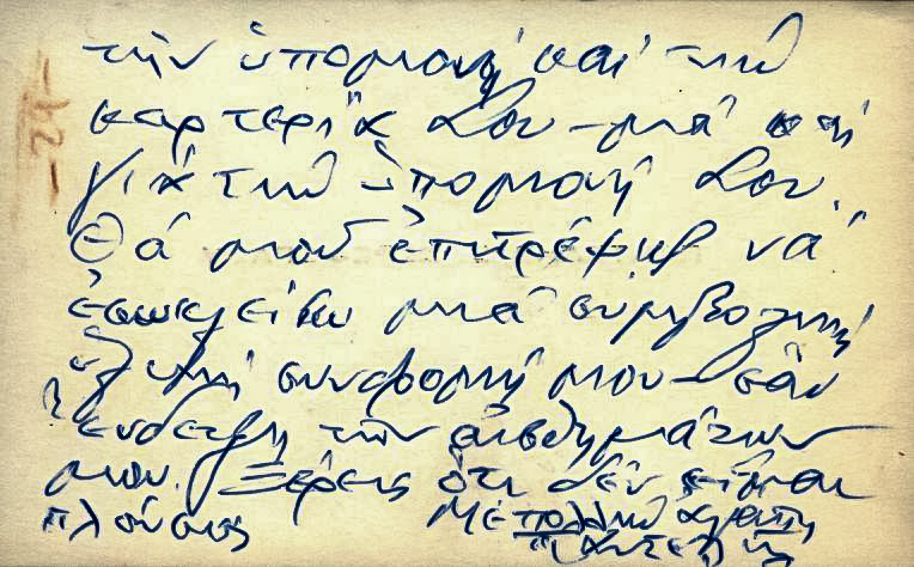 τὴν ὑπομονή καί τήν
καρτερία Σου - μά καί
γιά τήν ὑπομονή Σου.
Θά μοῦ ἐπιτρέψης νά
ἐσωκλείσω μιά συμβολική
ὑλική συνδρομή μου - σάν
ἔνδειξη τῶν αἰσθημάτων
μου. Ξέρεις ὅτι δέν εἶμαι
πλούσιος Μέ πολλήν ἀγάπη
-24-